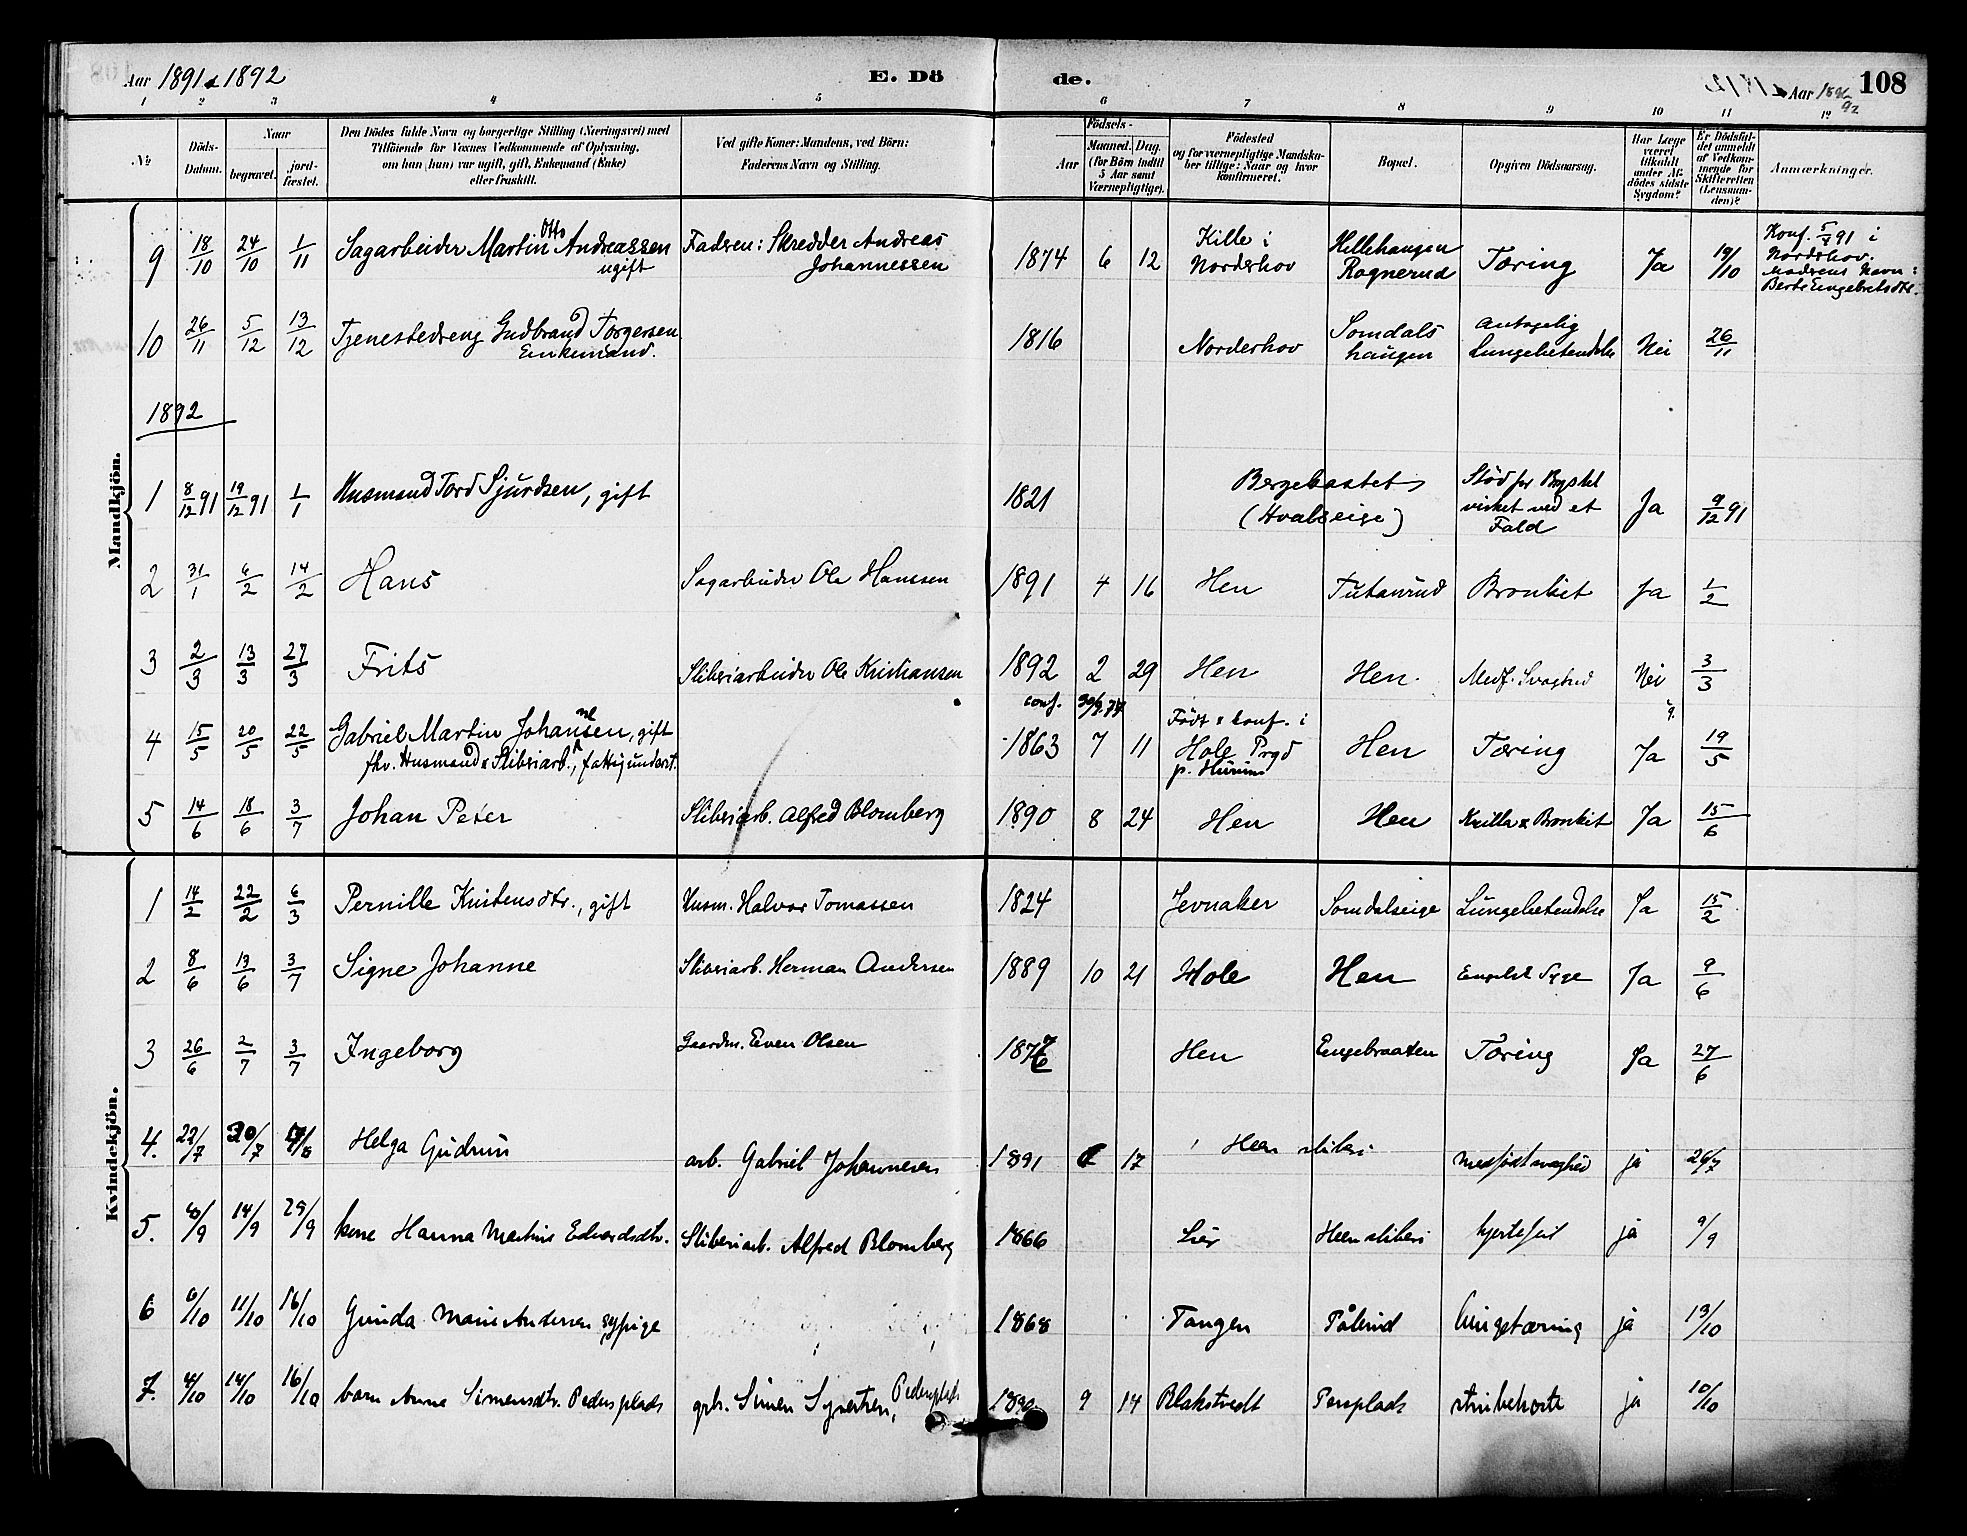 Aar 1891 & 1892
E. Dö
de.
Aar 1891/92
108
1 2 3 4 5 6 7 8 9 10 11 12
No
Döds-Datum.
Naar
begravet.
jord-fæstet.
Den Dödes fulde Navn og borgerlige Stilling (Næringsvei) med
Tilföiende for Voxnes Vedkommende af Oplysning,
om han (hun) var ugift, gift, Enkemand (Enke)
eller fraskilt.
Ved gifte Koner: Mandens, ved Börn:
Faderens Navn og Stilling.
Födsels-
Aar
Maaned. Dag.
(for Börn indtil
5 Aar samt
Værnepligtige).
Födested
og for værnepligtige Mandska-
ber tillige: Naar og hvor
konfirmeret.
Bopæl.
Opgiven Dödsaarsag.
Har Læge
været
tilkaldt
under Af-
dödes sidste
Sygdom?
Er Dödsfal-
det anmeldt
af Vedkom-
mende for
Skifteretten
(Lensman-
den)?
Anmærkninger.
Mandkjön.
9 18/10 24/10 1/11 Sagarbeider Martin Otto Andreassen ugift Faderen: Skredder Andreas Johannessen 1874 6 12 Kille i Norderhov Hellehaugen Rognerud Tæring Ja 19/10 Konf. 5/4 91 i Norderhov. Moderens Navn: Berte Engebretsdtr.
10 26/11 5/12 13/12 Tjenestedreng Gudbrand Torgersen Enkemand. 1816 Norderhov Somdals haugen antagelig Lungebetendelse Nei 26/11
1892
1 8/12 91 19/12 91 1/1 Husmand Tord Sjurdsen, gift 1821 (Hvalseige) Stöd for Brystet virket ved et Fald Ja 9/12 91
2 31/1 6/2 14/2 Hans Sagarbeider Ole Hansen 1891 4 16 Hen Tutanrud Bronkit Ja 1/2
3 2/3 13/3 27/3 Frits Sliberiarbeider Ole Kristiansen 1892 2 29 Hen Hen. Medf. Svaghed Nei 3/3
4 15/5 20/5 22/5 Gabriel Martin Johannesen, gift fhv. Husmand & Sliberiarb., fattigunderst. 1863 7 11 Födt & konf. i Hole Prgd p. Hurum Hen Tæring Ja 19/5
5 14/6 18/6 3/7 Johan Peter Sliberiarb. Alfred Blomberg 1890 8 24 Hen Hen Krilla & Bronkit Ja 15/6
Kvindekjön.
1 14/2 22/2 6/3 Pernille Kristensdtr., gift Husm. Halvor Tomassen 1824 Jevnaker Somdalseige Lungebetendelse Ja 15/2
2 8/6 13/6 3/7 Signe Johanne Sliberiarb. Herman Andersen 1889 10 21 Hole Hen Engelsk Syge Ja 9/6
3 26/6 2/7 3/7 Ingeborg Gaardm. Even Olsen 1876 Hen Engebraaten Tæring Ja 27/6
4. 22/7 30/7 Helga Gudrun arb. Gabriel Johannesen 1891 17 Heen sliberi medfödt svaghed ja
5. 8/9 14/9 25/9 kone Hanna Martine Edvardsdtr. Sliberiarb. Alfred Blomberg 1866 Lier Heen sliberi hjertefeil ja 9/9
6 6/10 11/10 16/10 Gunda Marie Andersen sypige 1868 Tangen Pålerud lungetæring ja 13/10
7. 4/10 14/10 16/10 barn Anne Simensdtr. Pedersplads grb. Simen Syvertsen, Pedersplads 1890 9 14 Blakstvedt Persplads strubehoste ja 10/10